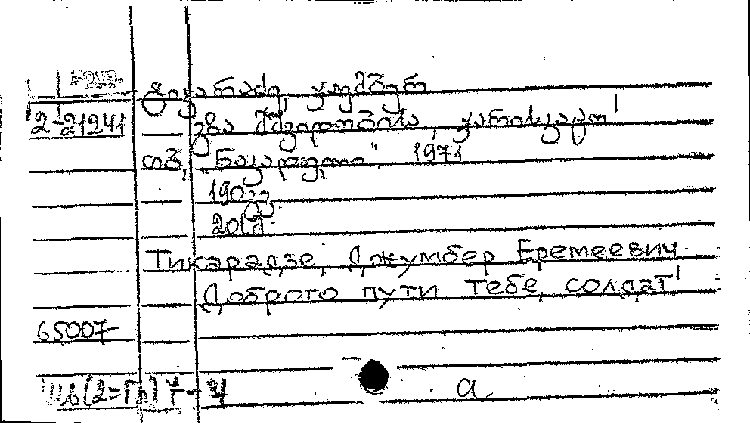 ტიკარაძე, ჯუმბერ
2-21941 გზა მშვიდობისა, ჯარისკაცო!
თბ, "ნაკადული", 1971
190გვ
Тикарадзе, Джумбер Еремеевич
Доброго пути тебе, солдат!
65007-
а